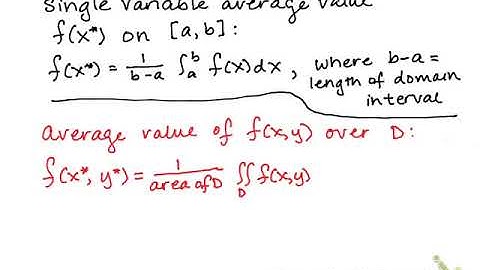 Single variable average value
f(x*) on [a,b]:
f(x*) = 1/(b-a) ∫_a^b f(x)dx, where b-a =
length of domain
interval
average value of f(x,y) over D:
f(x*, y*) = 1/(area of D) ∬_D f(x,y)